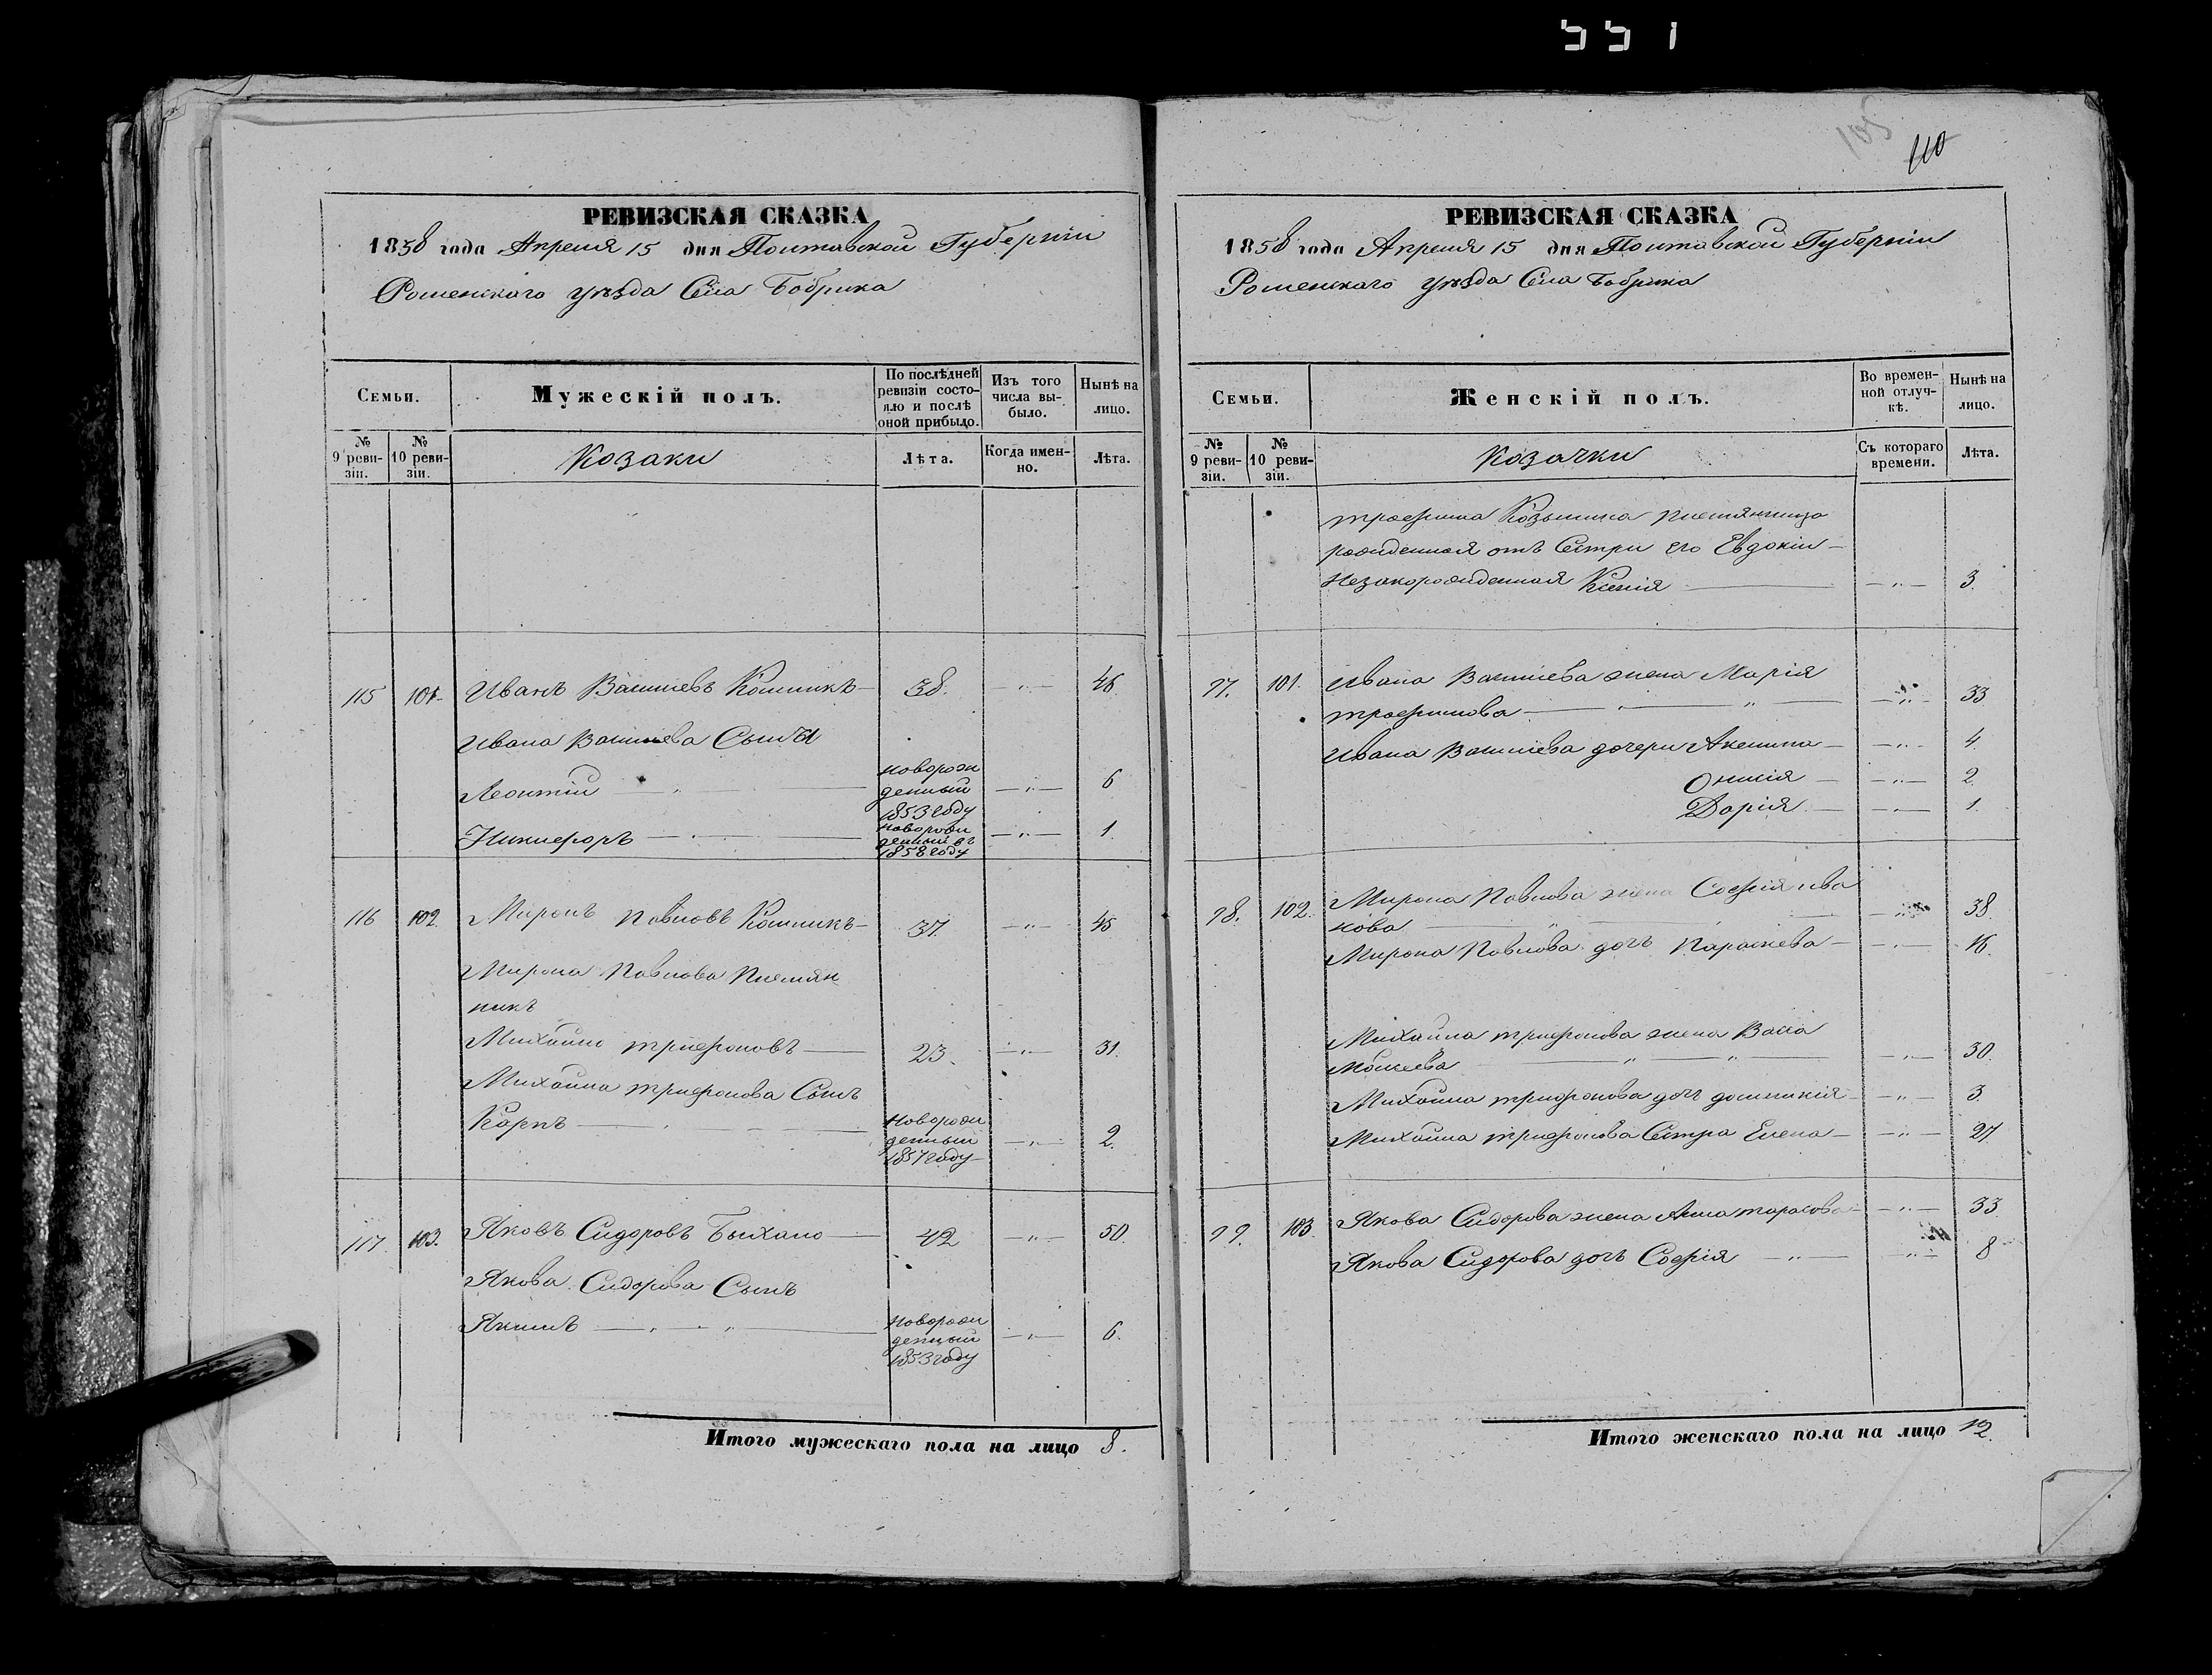 551
105
110
РЕВИЗСКАЯ СКАЗКА
1858 года Апреля 15 дня Полтавской Губерніи
Роменскаго уѣзда Села Бобрика
Семьи.
Мужескій полъ.
По послѣдней ревизіи состояло и послѣ оной прибыло.
Изъ того числа выбыло.
Нынѣ на лицо.
№ 9 ревизіи.
№ 10 ревизіи.
Козаки
Лѣта.
Когда именно.
Лѣта.
115 101. Иванъ Васильевъ Кошикъ 38. — „ — 46
Ивана Васильева Сыны
Леонтій новорожденный 1853 году — „ — 6
Никифоръ новорожденный въ 1858 году — „ — 1.
116 102. Миронъ Павловъ Кошикъ 37. — „ — 45
Мирона Павлова Племян
никъ
Михайло трифоновъ 23. — „ — 31.
Михайла трифонова Сынъ
Карпъ новорожденный 1857 году — „ — 2.
117. 103. Яковъ Сидоровъ 42 — „ — 50.
Якова Сидорова Сынъ
Якимъ новорожденный 1853 году — „ — 6.
Итого мужескаго пола на лицо 8.
РЕВИЗСКАЯ СКАЗКА
1858 года Апреля 15 дня Полтавской Губерніи
Роменскаго уѣзда Села Бобрика
Семьи.
Женскій полъ.
Во временной отлучкѣ.
Нынѣ на лицо.
№ 9 ревизіи.
№ 10 ревизіи.
Козачки
Съ котораго времени.
Лѣта.
трофима Козьмина племянница
рожденная отъ Сестри его Евдокіи
Незаконорожденная Ксенія — „ — 3.
97. 101. Ивана Васильева жена Марія
трофимова — „ — 33
Ивана Васильева дочери Акелина — „ — 4.
Онисія — „ — 2.
Дарія — „ — 1.
98. 102. Мирона Павлова жена Софія ива
нова — „ — 38.
Мирона Павлова дочь Параскева — „ — 16.
Михайла трифонова жена Васса
Моисеева — „ — 30.
Михайла трифонова дочь домникія — „ — 3.
Михайла трифонова Сестра Елена — „ — 27
99. 103. Якова Сидорова жена Анна тарасова — „ — 33
Якова Сидорова дочь Софія — „ — 8
Итого женскаго пола на лицо 12.